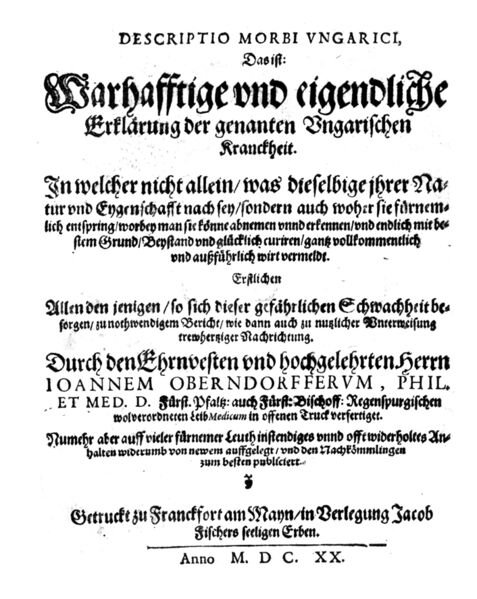 DESCRIPTIO MORBI VNGARICI,
Das ist:
Warhafftige vnd eigendliche
Erklärung der genanten Vngarischen
Kranckheit.
In welcher nicht allein/was dieselbige jhrer Na-
tur vnd Eygenschafft nach sey/sondern auch woher sie fürnem-
lich entspring/worbey man sie könne abnemen vnnd erkennen/vnd endlich mit be-
stem Grund/Beystand vnd glücklich curiren/gantz vollkommentlich
vnd außführlich wirt vermeldt.
Erstlichen
Allen den jenigen/so sich dieser gefährlichen Schwachheit be-
sorgen/zu nothwendigem Bericht/wie dann auch zu nutzlicher Vnterweisung
trewhertziger Nachrichtung.
Durch den Ehrnvesten vnd hochgelehrten Herrn
IOANNEM OBERNDORFFERVM, PHIL.
ET MED. D. Fürst. Pfaltz: auch Fürst: Bischoff: Regenspurgischen
wolverordneten Leib Medicum in offenen Truck verfertiget.
Numehr aber auff vieler fürnemer Leuth instendiges vnnd offt widerholtes An-
halten widerumb von newem auffgelegt/vnd den Nachkömmlingen
zum besten publiciert.
Getruckt zu Franckfort am Mayn/in Verlegung Jacob
Fischers seeligen Erben.
Anno M. D C. XX.